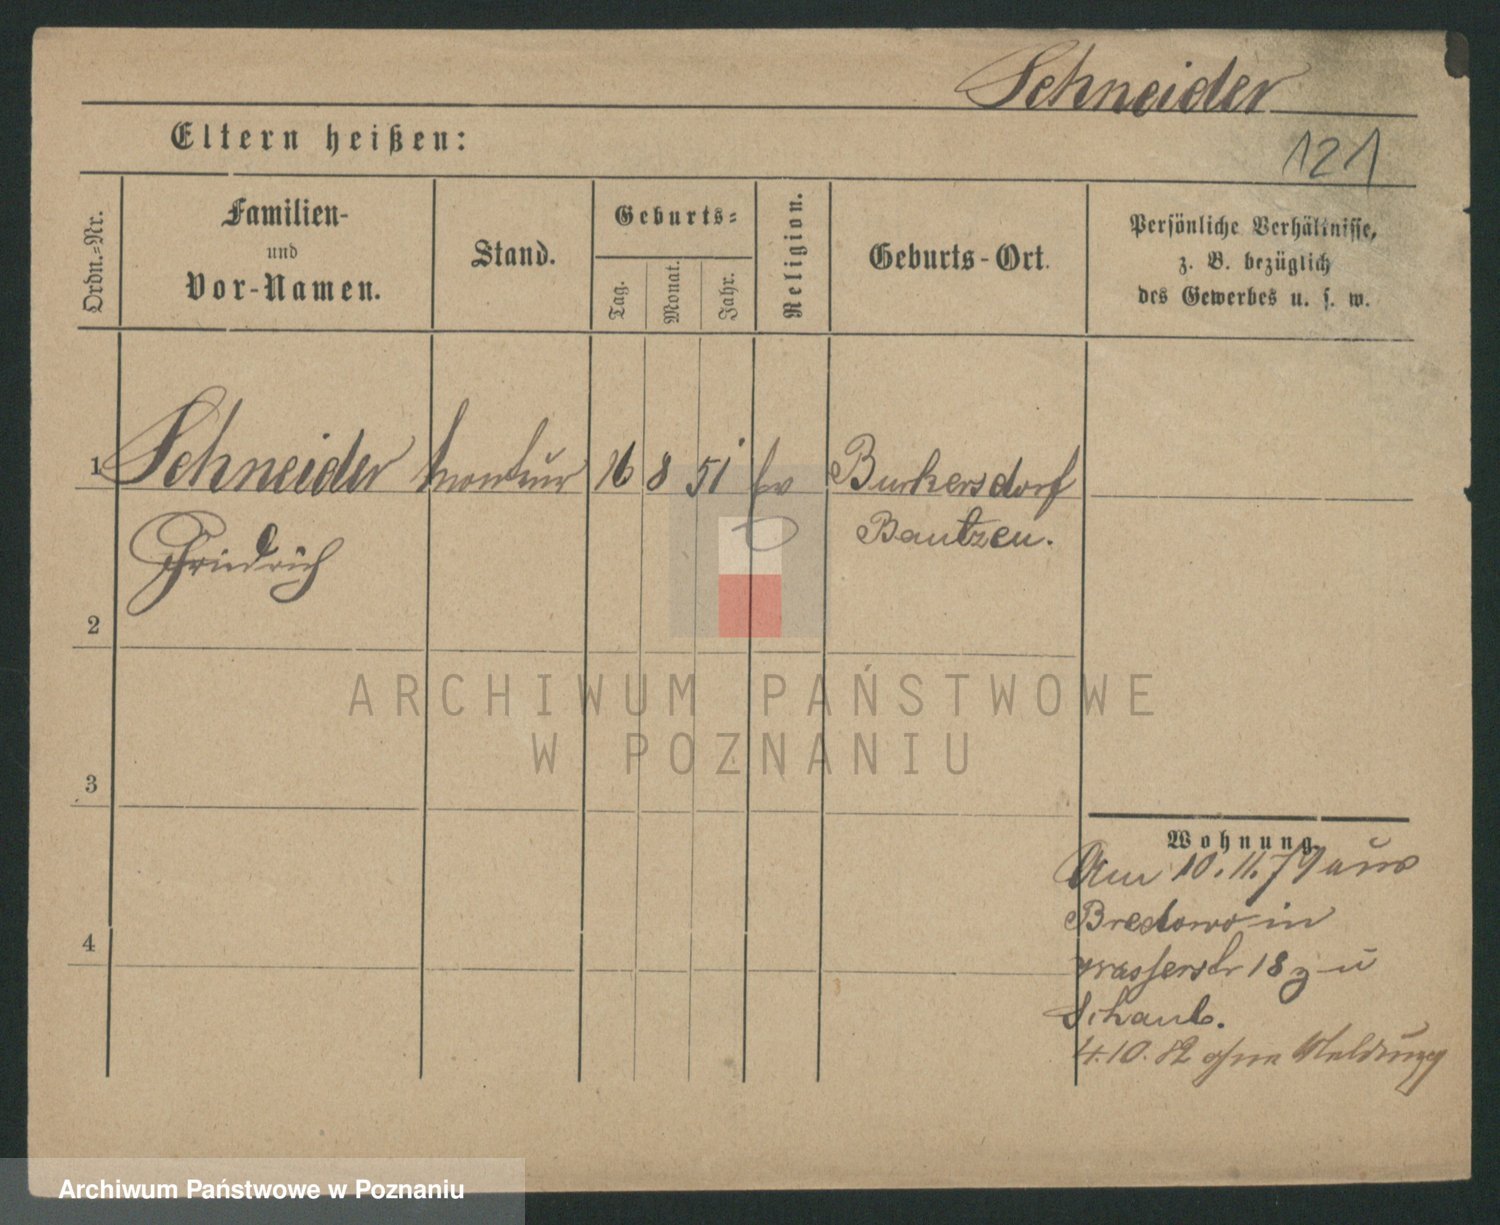 Schneider
Eltern heißen:
121
Ordn.-Nr.
Familien-
und
Vor-Namen.
Stand.
Geburts-
Tag.
Monat.
Jahr.
Religion.
Geburts-Ort.
Persönliche Verhältnisse,
z. B. bezüglich
des Gewerbes u. s. w.
1 Schneider Monteur 16 8 51 ev Burkersdorf
Bautzen.
Friedrich
2
ARCHIWUM PAŃSTWOWE
W POZNANIU
3
Wohnung.
Am 10.11.79 aus
Bredowo in
4
Wasserstr 18 zu
Schaub.
4.10.82 ohne Meldung
Archiwum Państwowe w Poznaniu